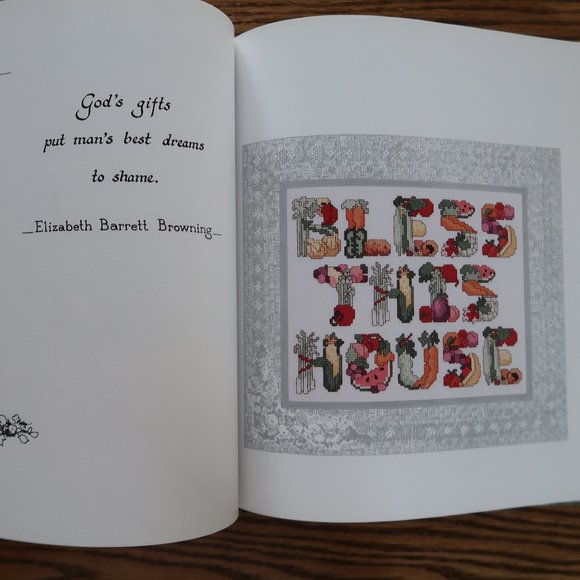 God's gifts
put man's best dreams
to shame.
Elizabeth Barrett Browning
BLESS
THIS
HOUSE